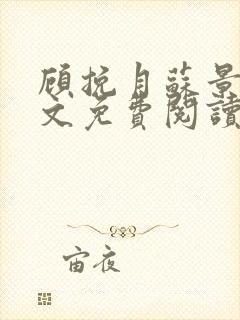 顾挽月蘇景
文免費閱讀
宙夜